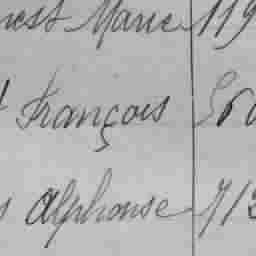 nest Marie 119
t François
s Alphonse 713